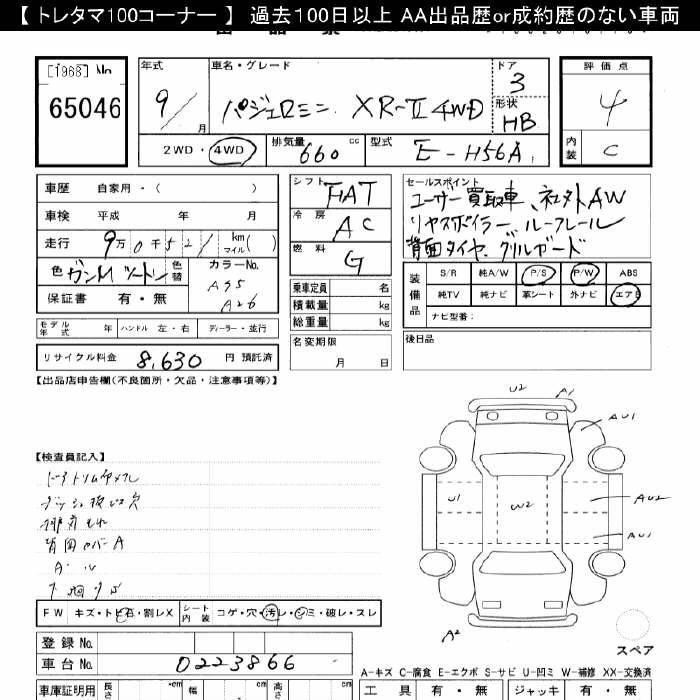 【 トレタマ100コーナー 】 過去100日以上 AA出品歴or成約歴のない車両
[1968] No
65046
年式 9/ 月
車名・グレード パジェロミニ XR-Ⅱ 4WD
ドア 3
形状 HB
評価点 4
内装 C
2WD・4WD
排気量 660 cc
型式 E-H56A
車歴 自家用・( )
車検 平成 年 月
走行 9万0千521 km マイル( )
色 ガンMツートン 色替
カラーNo. A95 A26
保証書 有・無
モデル年式 年 ハンドル 左・右 ディーラー・並行
リサイクル料金 8,630 円 預託済
シフト FAT
冷房 AC
燃料 G
乗車定員 名
積載量 kg
総重量 kg
名変期限 月 日
セールスポイント
ユーザー買取車、社外AW
リヤスポイラー、ルーフレール
背面タイヤ、グリルガード
装備品
S/R 純A/W P/S P/W ABS
純TV 純ナビ 革シート 外ナビ エアB
ナビ型番:
後日品
【出品店申告欄(不良箇所・欠品・注意事項等)】
【検査員記入】
背面カバーA
A・U
下廻りS
FW キズ・トビ石・割レX シート内装 コゲ・穴・汚レ・シミ・破レ・スレ
登録No.
車台No. 0223866
U2 A1
AU1
U1 W2 AU2
AU1
A2
スペア
A-キズ C-腐食 E-エクボ S-サビ U-凹ミ W-補修 XX-交換済
車庫証明用 長さ cm 幅 cm 高さ cm
工具 有・無 ジャッキ 有・無